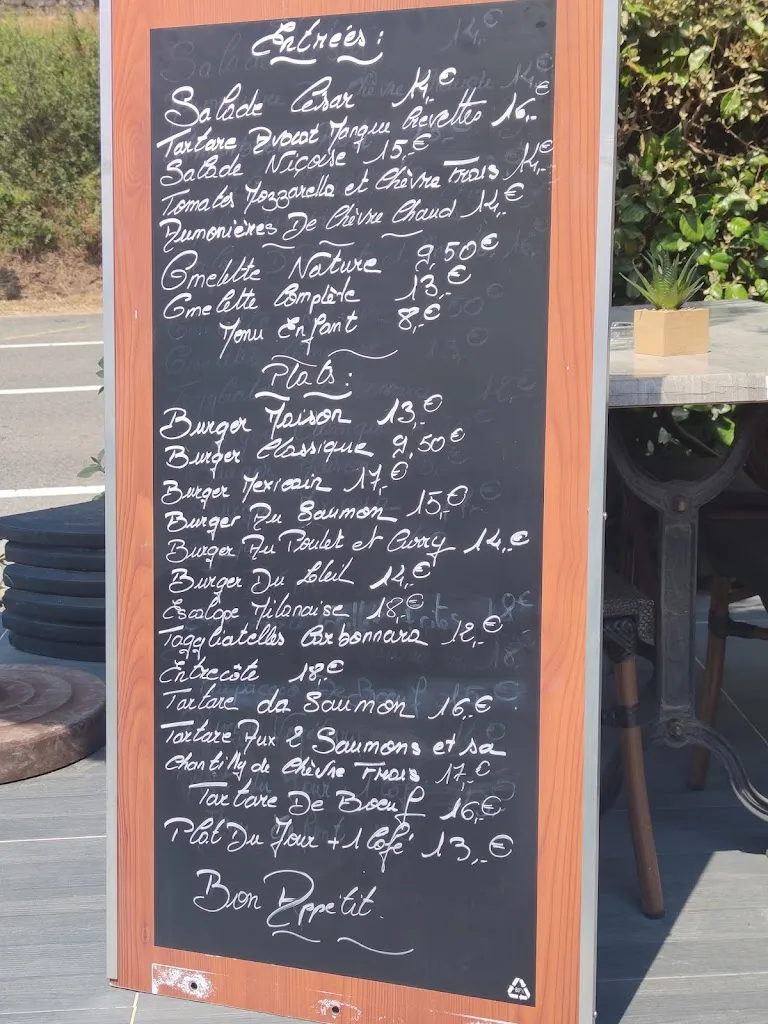 Entrées :
Salade César 14,-€
Tartare Avocat Mangue Crevettes 16,-
Salade Niçoise 15,-€
Tomates Mozzarella et Chèvre Frais 14,-€
Aumonières De Chèvre Chaud 14,-€
Omelette Nature 9,50€
Omelette Complète 13,-€
Menu Enfant 8,-€
Plats :
Burger Maison 13,-€
Burger Classique 9,50€
Burger Mexicain 17,-€
Burger Au Saumon 15,-€
Burger Au Poulet et Curry 14,-€
Burger Du Soleil 14,-€
Escalope Milanaise 18,-€
Taggliatelles Carbonnara 12,-€
Entrecôte 18,-€
Tartare de Saumon 16,-€
Tartare Aux 2 Saumons et sa
Chantilly de Chèvre Frais 17,-€
Tartare De Boeuf 16,-€
Plat Du Jour + 1 Café 13,-€
Bon Appétit